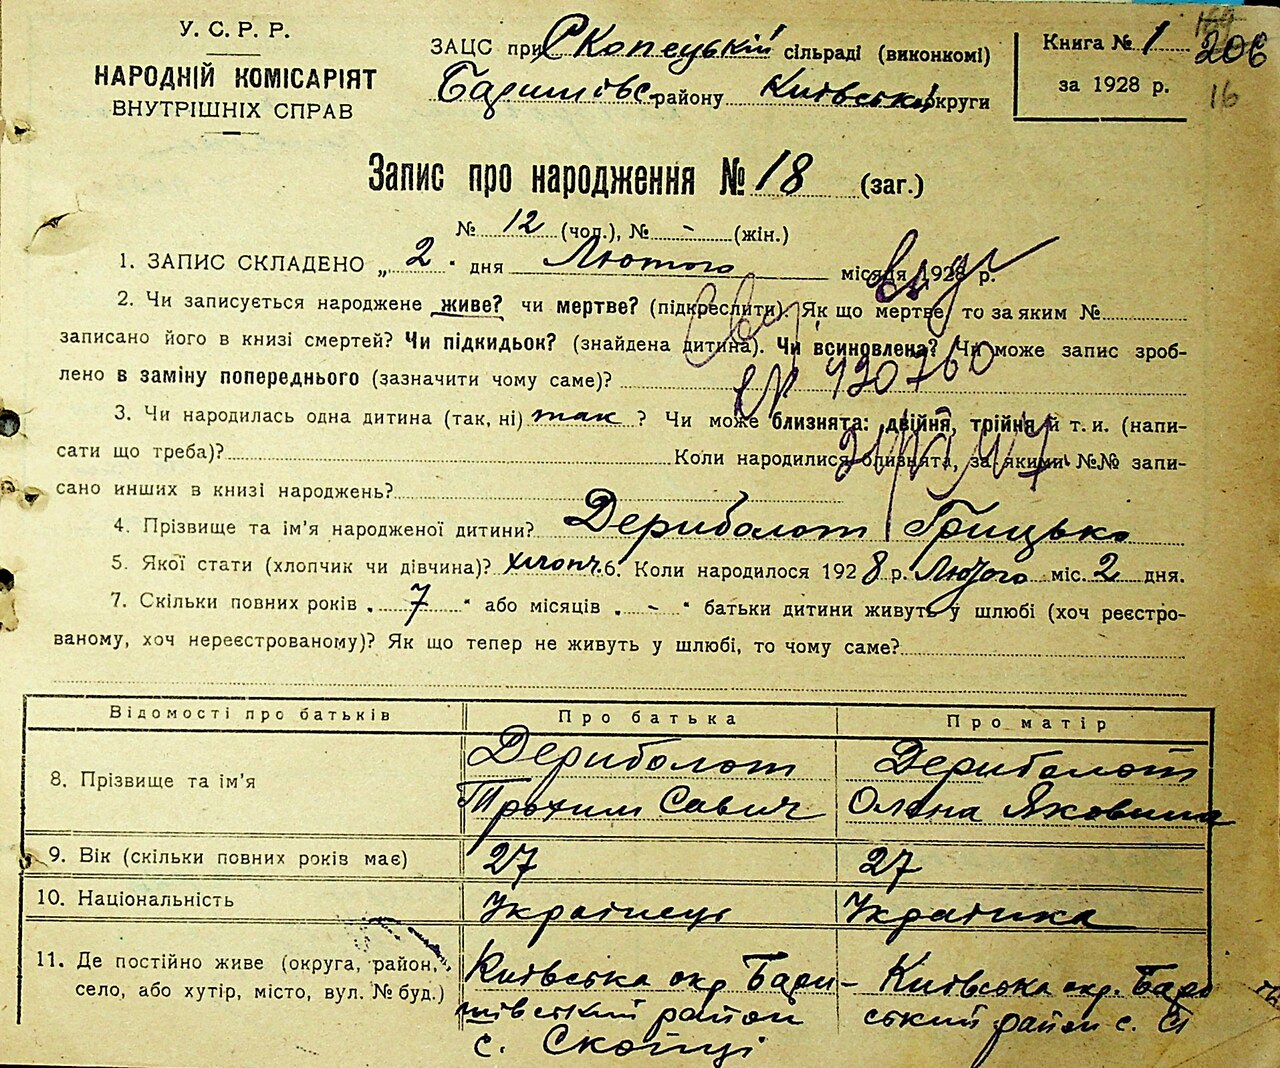 У. С. Р. Р.
НАРОДНІЙ КОМІСАРІЯТ
ВНУТРІШНІХ СПРАВ
ЗАЦС при Скопецькій сільраді (виконкомі)
Баришівс. району Київської округи
Книга № 1
за 1928 р.
206
16
Запис про народження № 18 (заг.)
№ 12 (чол.), № - (жін.)
1. ЗАПИС СКЛАДЕНО „ 2 " дня Лютого місяця 1928 р.
2. Чи записується народжене живе? чи мертве? (підкреслити). Як що мертве, то за яким №
записано його в книзі смертей? Чи підкидьок? (знайдена дитина). Чи всиновлена? Чи може запис зроб-
лено в заміну попереднього (зазначити чому саме)?
930760
3. Чи народилась одна дитина (так, ні) так ? Чи може близнята: двійня, трійня й т. и. (напи-
сати що треба)? Коли народилися близнята, за якими №№ запи-
сано инших в книзі народжень?
4. Прізвище та ім'я народженої дитини? Дериболот Грицько
5. Якої стати (хлопчик чи дівчина)? хлопч. 6. Коли народилося 1928 р. Лютого міс. 2 дня.
7. Скільки повних років „ 7 " або місяців „ - " батьки дитини живуть у шлюбі (хоч реєстро-
ваному, хоч нереєстрованому)? Як що тепер не живуть у шлюбі, то чому саме?
Відомості про батьків Про батька Про матір
8. Прізвище та ім'я Дериболот Трохим Савич Дериболот Олена Яковина
9. Вік (скільки повних років має) 27 27
10. Національність Українець Українка
11. Де постійно живе (округа, район, Київська окр Бари- Київська окр. Бари
село, або хутір, місто, вул. № буд.) шівський район ський район с.
с. Скопці